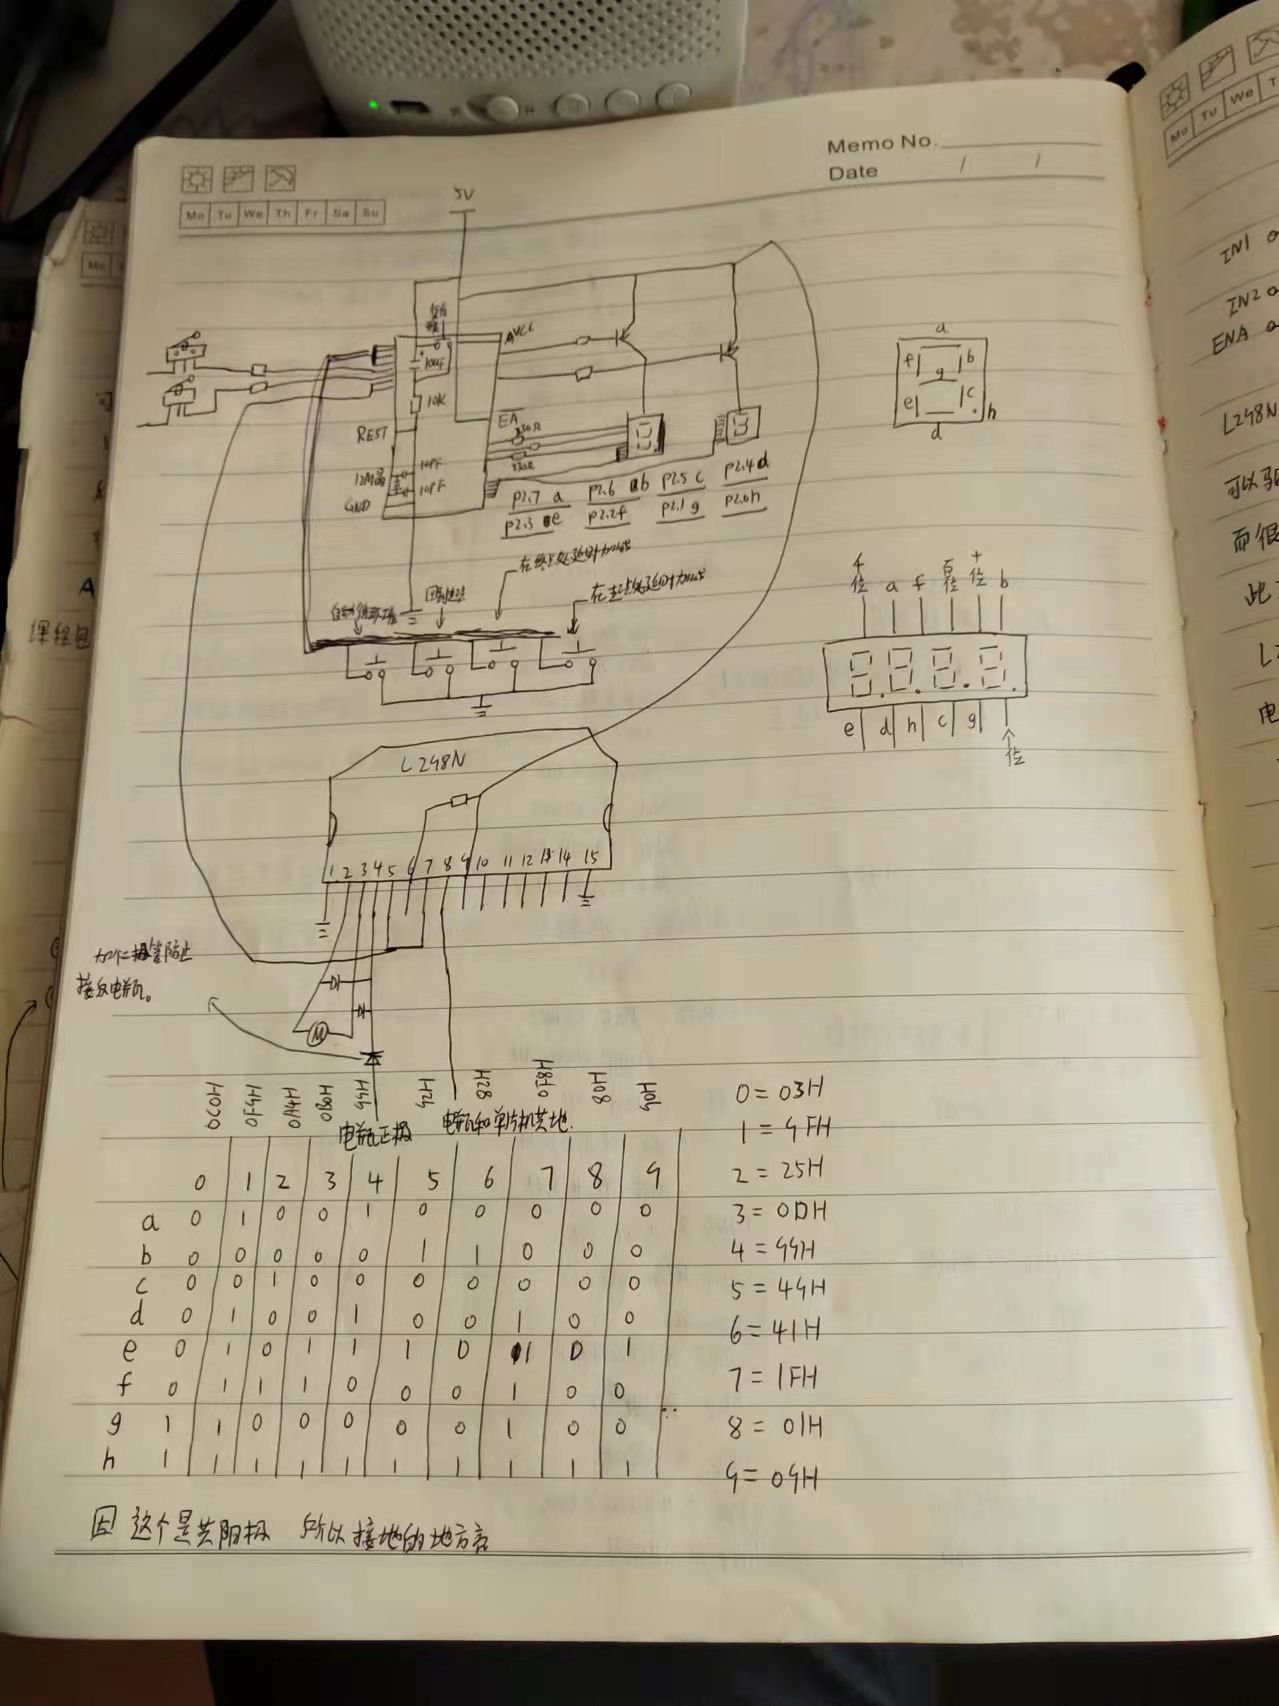 Memo No.
Date / /
Mo Tu We Th Fr Sa Su
5V
AVCC
10uF
10K
REST
EA
10PF
12M晶
10PF
GND
P2.7 a P2.6 b P2.5 c P2.4 d
P2.3 e P2.2 f P2.1 g P2.0 h
a
f b
g
e c
d h
千位 a f 百位 十位 b
e d h c g 个位
L298N
1 2 3 4 5 6 7 8 9 10 11 12 13 14 15
加个二极管防止
接反电瓶。
M
电瓶正极
电瓶和单片机共地.
0C0H 0F9H 0A4H 0B0H 99H 92H 82H 0F8H 80H 90H
0 1 2 3 4 5 6 7 8 9
a 0 1 0 0 1 0 0 0 0 0
b 0 0 0 0 0 1 1 0 0 0
c 0 0 1 0 0 0 0 0 0 0
d 0 1 0 0 1 0 0 1 0 0
e 0 1 0 1 1 1 0 1 0 1
f 0 1 1 1 0 0 0 1 0 0
g 1 1 0 0 0 0 0 1 0 0
h 1 1 1 1 1 1 1 1 1 1
0 = 03H
1 = 9FH
2 = 25H
3 = 0DH
4 = 99H
5 = 49H
6 = 41H
7 = 1FH
8 = 01H
9 = 09H
因 这个是共阳极 所以接地的地方亮
Mo Tu We
IN1
IN2
ENA
L298N
可以
而很
此
电
课程